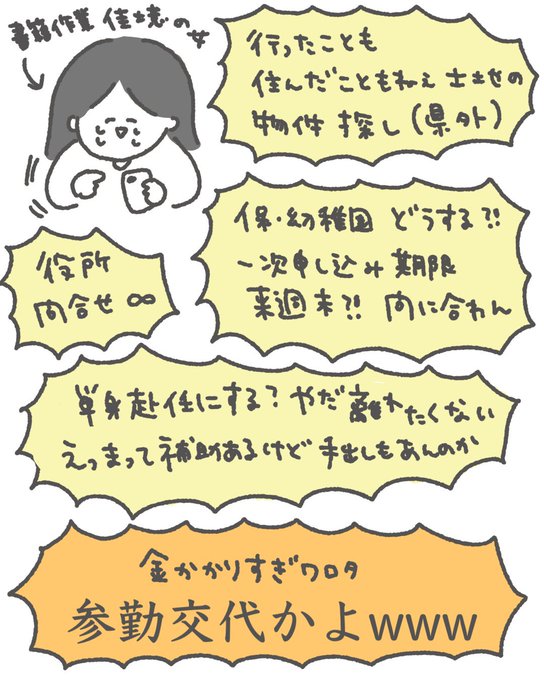 書籍作業 佳境の女
行ったことも
住んだこともねぇ土地の
物件 探し(県外)
保・幼稚園 どうする?!
一次申し込み期限
来週末?! 間に合わん
役所
問合せ ∞
単身赴任にする?やだ離れたくない
えっまって補助あるけど手出しもあんのか
金かかりすぎワロタ
参勤交代かよwww